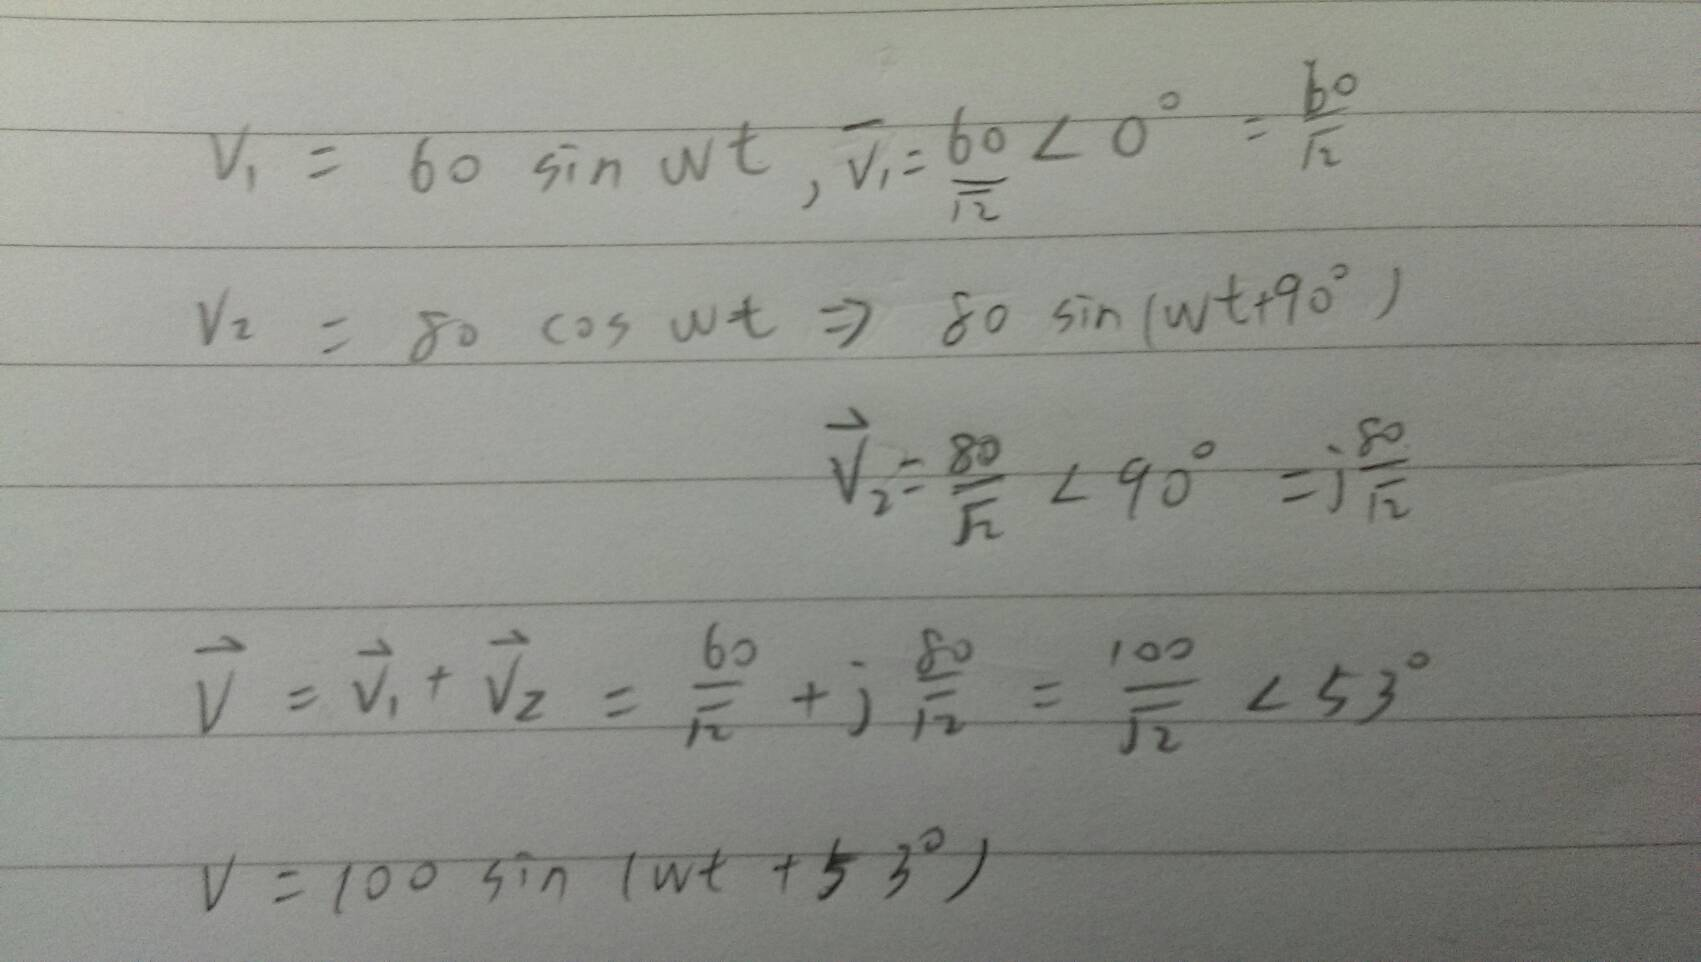 V₁ = 60 sin wt , V̅₁ = 60/√2 ∠0° = 60/√2
V₂ = 80 cos wt ⇒ 80 sin (wt+90°)
V⃗₂ = 80/√2 ∠90° = j 80/√2
V⃗ = V⃗₁ + V⃗₂ = 60/√2 + j 80/√2 = 100/√2 ∠53°
V = 100 sin (wt +53°)